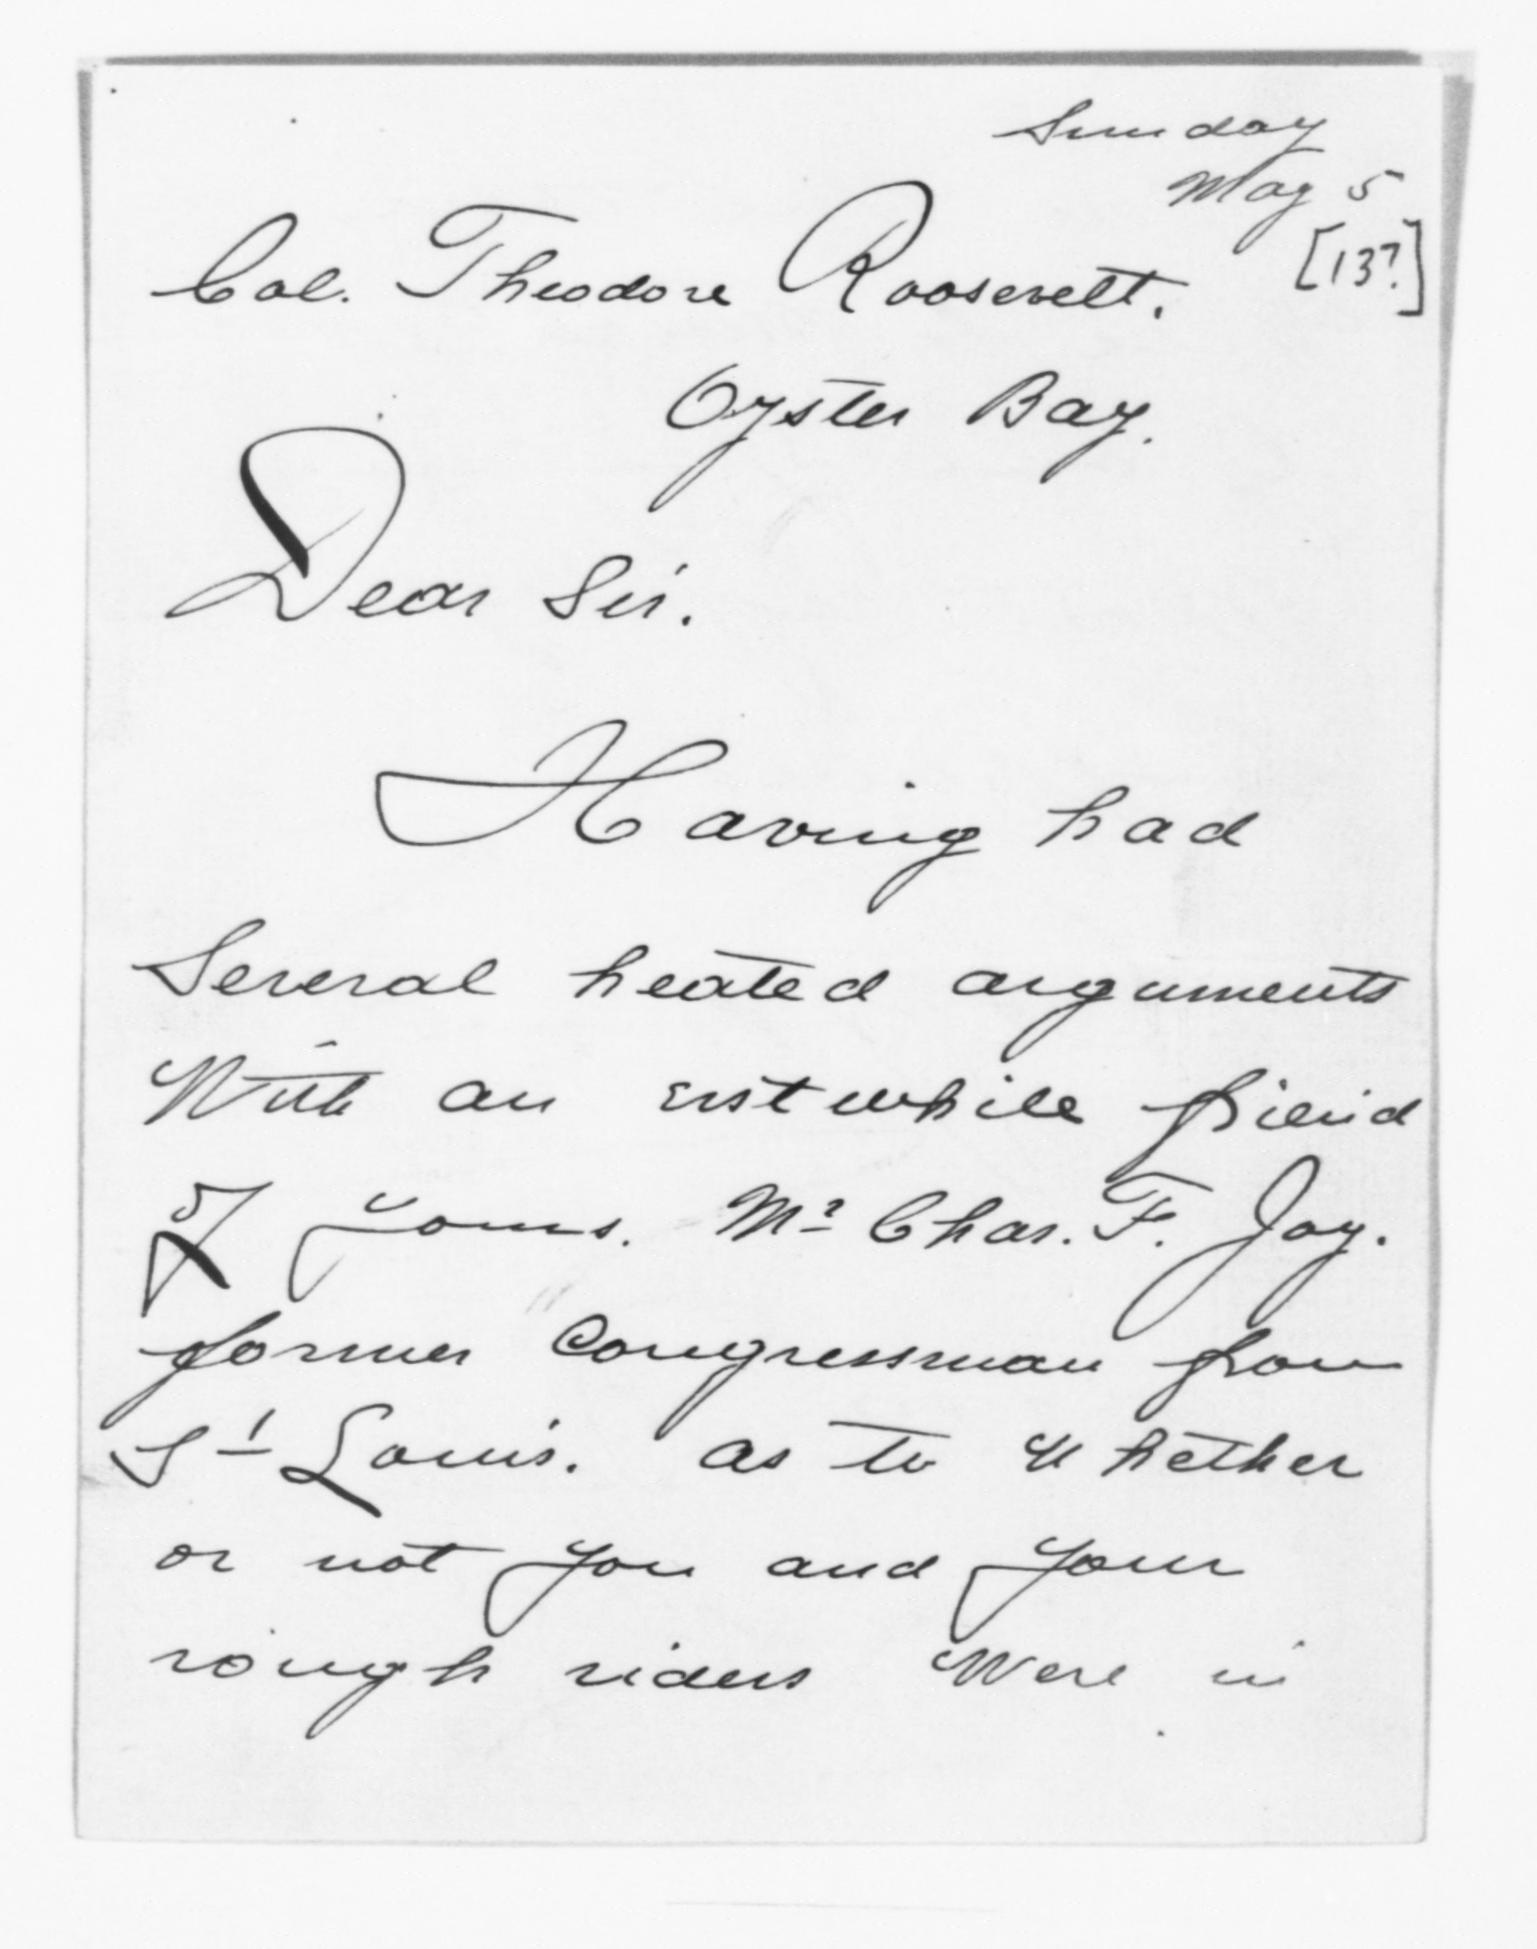 Sunday
May 5
[13?]
Col. Theodore Roosevelt.
Oyster Bay.
Dear Sir.
Having had
Several heated arguments
With an erstwhile friend
of yours. Mr Chas. F. Joy.
former Congressman from
St Louis. as to whether
or not you and your
rough riders were in